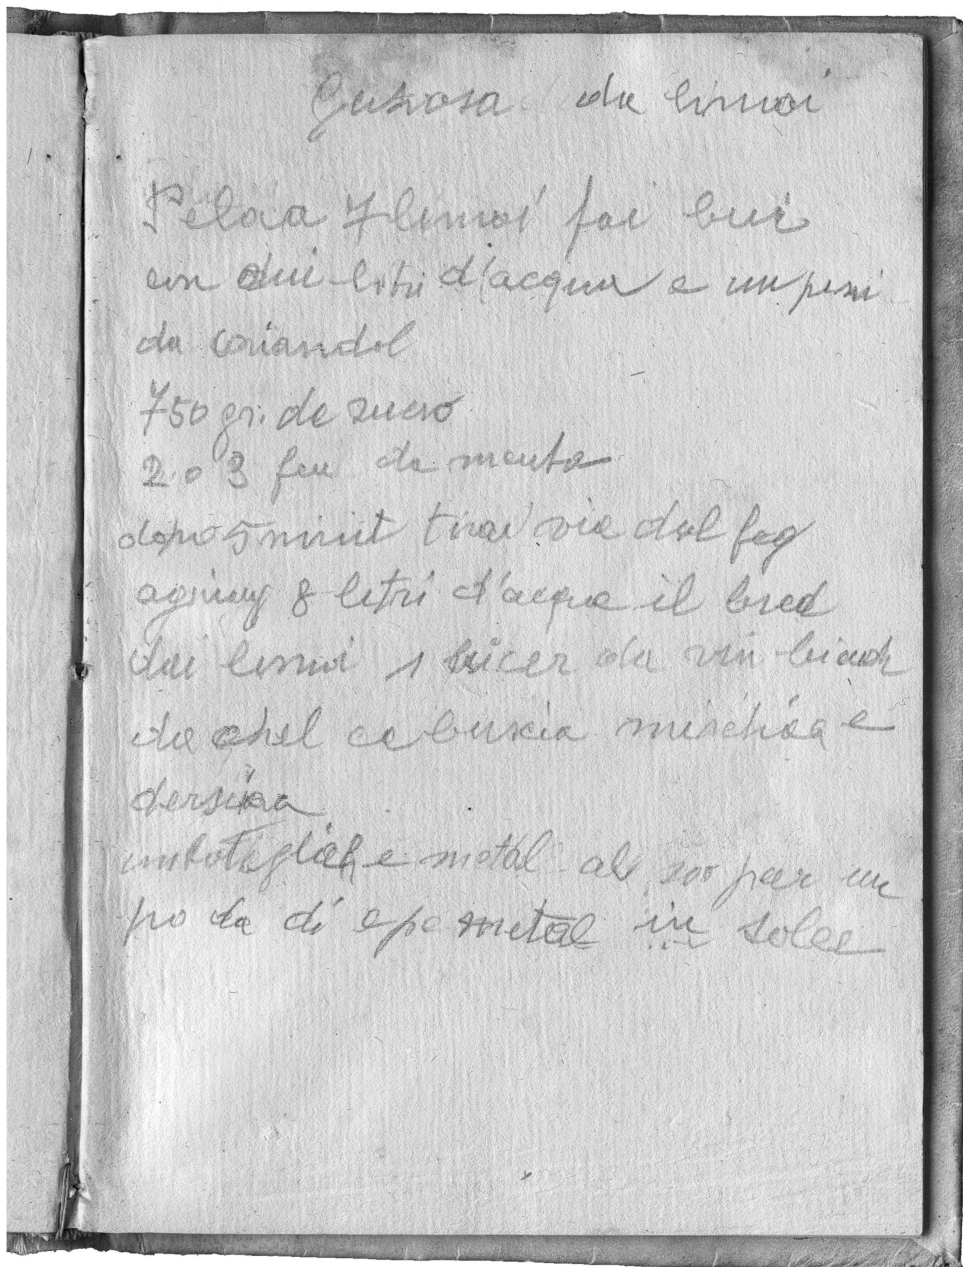 Gasosa da limoi
Pelaa 7 limoi fai bui
con dui litri d'acqua e un
da coriandol
750 gr. de zucro
2 o 3 da menta
dopo 5 minit tirai via dal fog
agiung 8 letri d'acqua il brod
dai limoi 1 bicer da vin bianch
da chel ca bruscia mischiaa e
imbotigliah e metal al soo par un
po da dí e po metal in